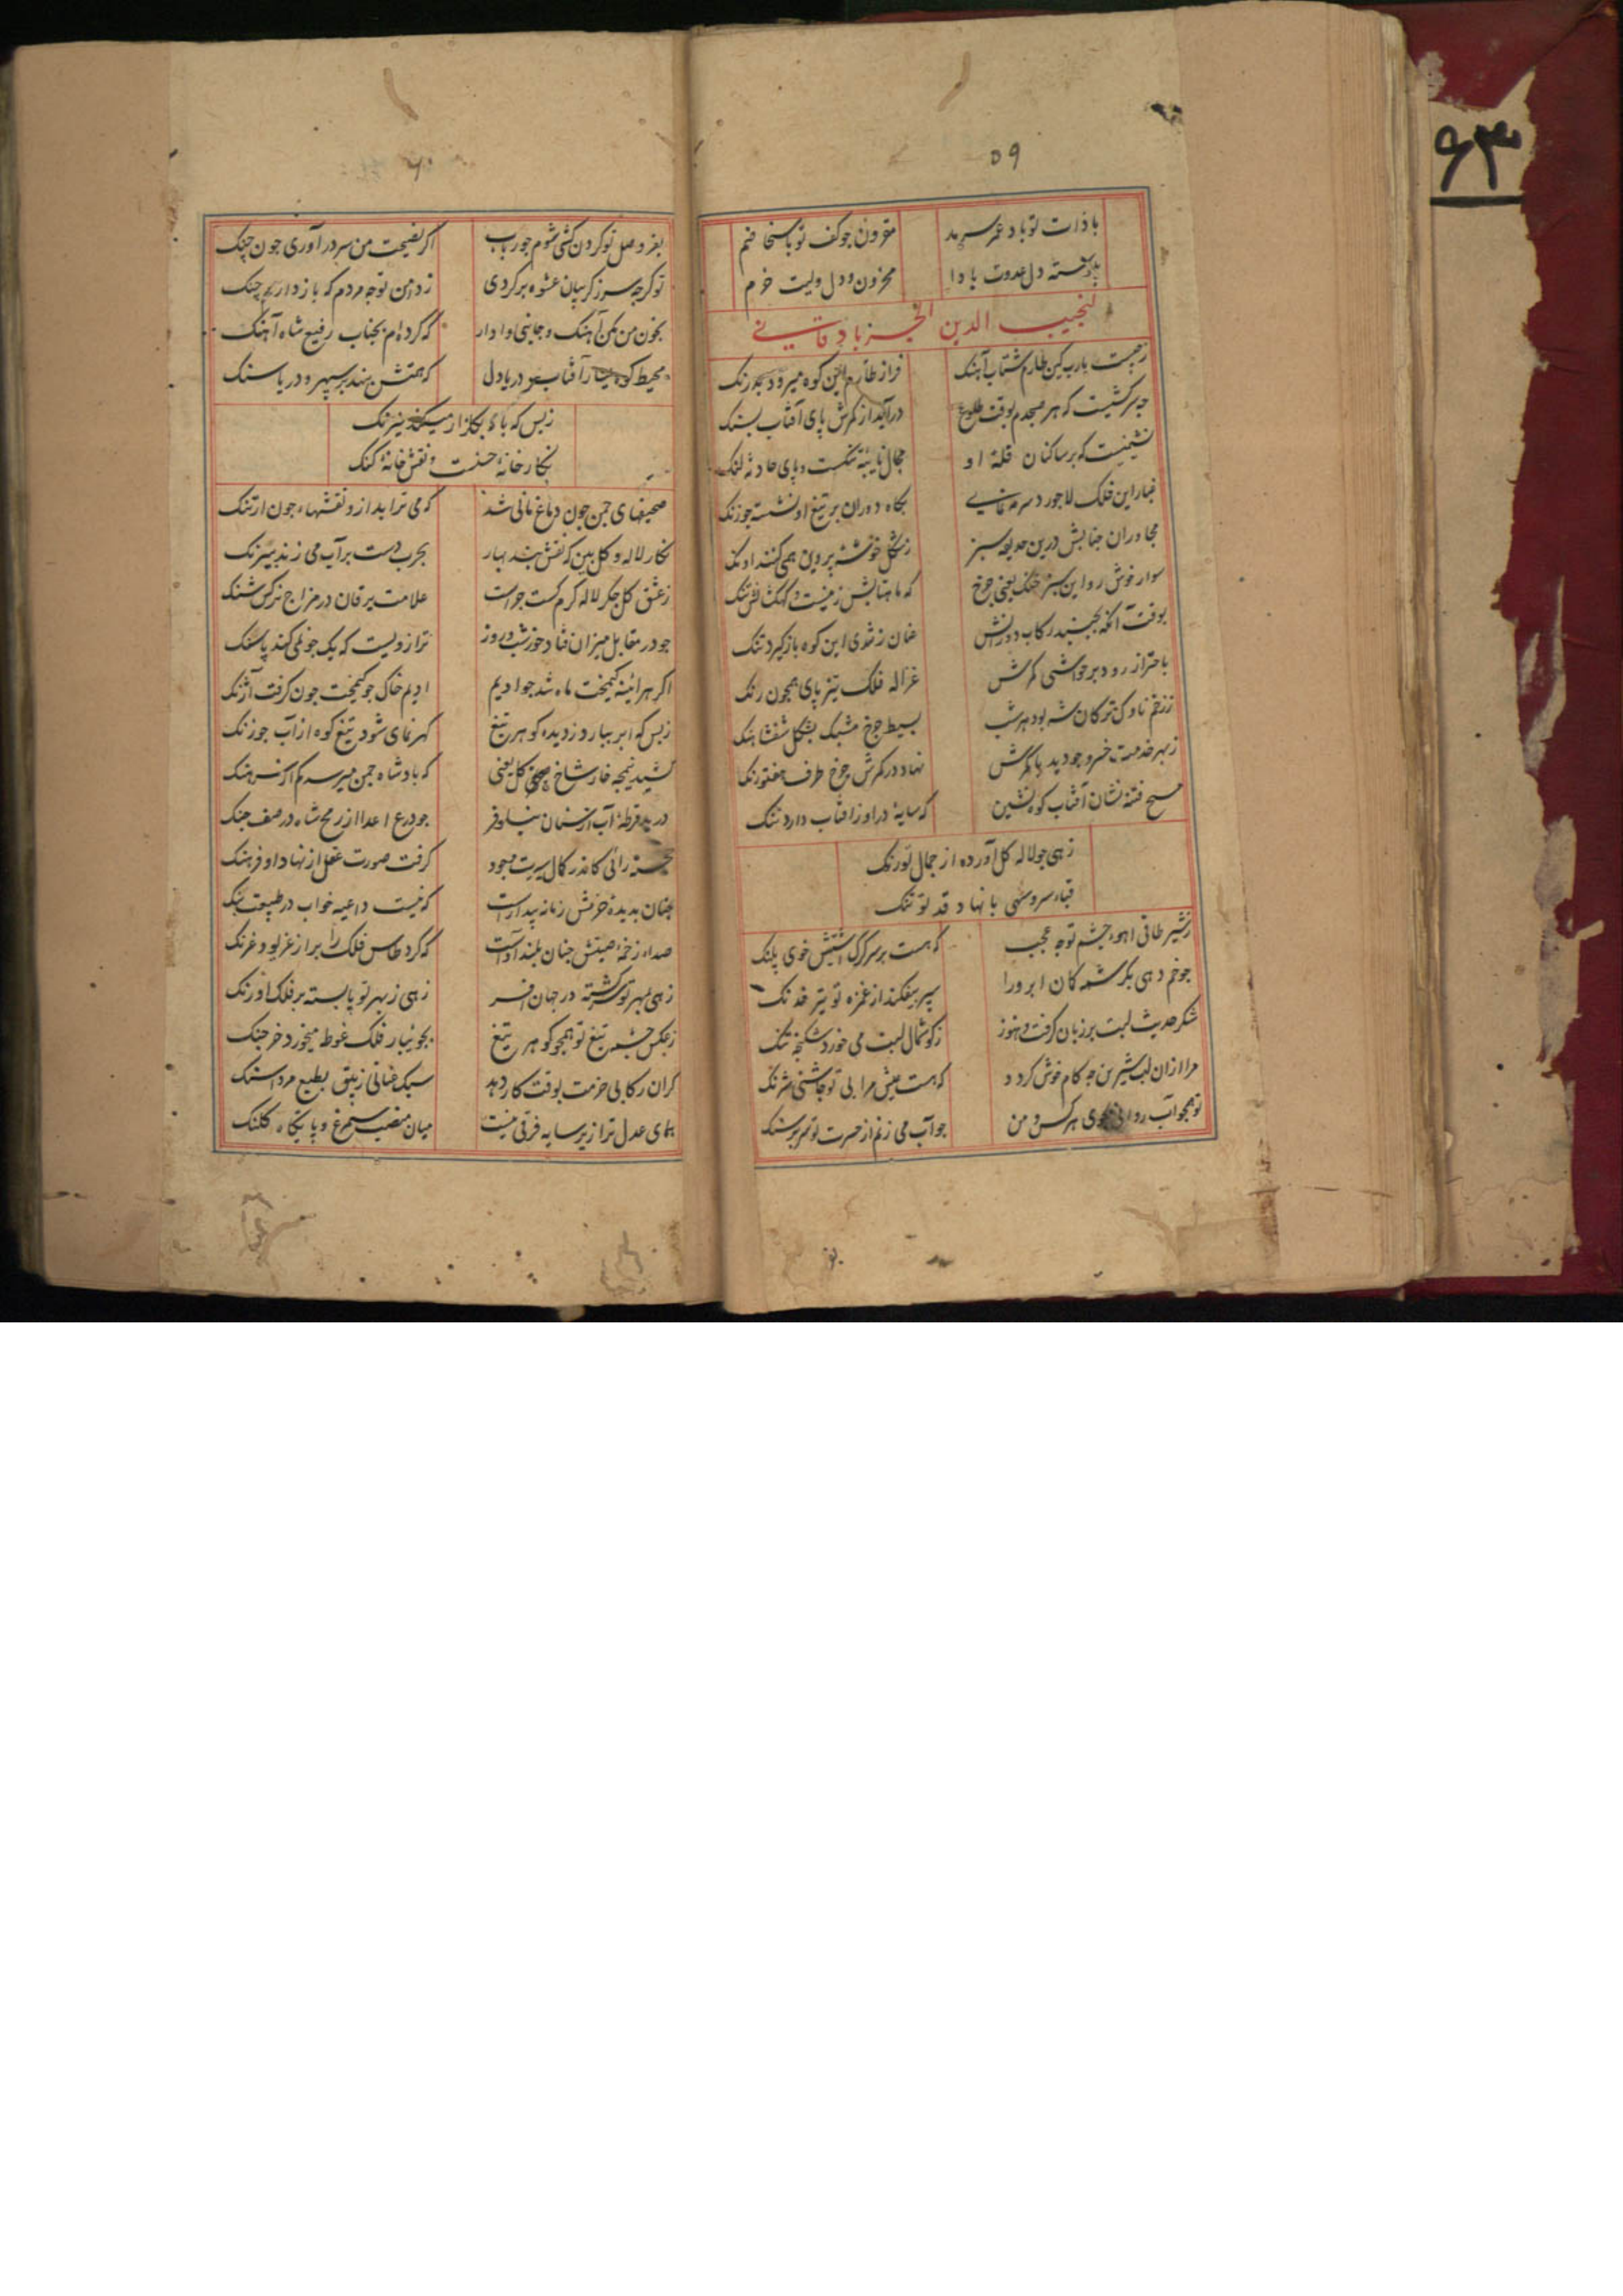 ۶۳
۵۹
با ذات تو باد عمر سرمد مقرون جو کف تو با سخا ضم
دل عدوت بادا محزون و دل ولیت خرم
لنجیب الدین الجرباد قانی
ز چیست یارب کین طارم شتاب آهنک فراز طارم این کوه میرود بدرنک
چه سرکشیست که هر صبحدم بوقت طلوع درآید از کمرش پای آفتاب بسنک
نشیمنیست که بر ساکنان قله او مجال نایبه تنکست و پای حادثه لنک
غبار این فلک لاجورد سرمه نمای بکاه دوران بر تیغ او نشسته جو زنک
مجاوران جنابش درین حدیقه سبز ز شکل خوشه پروین همی کنند اونک
سوار خوش رو این سبز خنک یعنی جرخ که ماهتابش زینست و کهکشانش تنک
بوقت آنکه بجنبد رکاب دورانش عنان ز تندی این کوه باز کیرد تنک
باحتراز رود بر حواشی کمرش غزاله فلک تیز پای همچون رنک
ز زخم ناوک ترکان شه بود هر شب بسیط جرخ مشبک بشکل شفشاهنک
ز بهر خدمت خسرو جو دید با کمرش نهاد در کمرش جرخ طرف هفتورنک
مسیح فتنه نشان آفتاب کوه نشین که سایه در او ز افتاب دارد ننک
زهی جو لاله کل آورده از جمال تو رنک
قباء سرو سهی با نهاد قد تو تنک
ز شیر طاقی اهوء جشم تو چه عجب که هست بر سر کرک آشتیش خوی پلنک
جو خم دهی بکرشمه کمان ابرو را سپر بیفکند از غمزه تو تیر خدنک
شکر حدیث لبت بر زبان کرفت و هنوز ز کوشمال لبت می خورد شکنجه تنک
مرا ازان لب شیرین چه کام خوش کردد که هست عیش مرا بی تو جاشنی شرنک
تو همجو آب روانی بسوی هر کس و من جو آب می زنم از حسرت تو سر بر سنک
۶۰
بفر وصل تو کردن کشی شوم جو رباب اکر نصیحت من سر درآوری جون چنک
تو کرچه سر ز کریبان عشوه بر کردی ز دامن تو چه مردم که باز دارم چنک
بخون من مکن آهنک و جانبی وا دار که کرده‌ام بجناب رفیع شاه آهنک
محیط کوه آفتاب دریا دل که همتش نهد بر سپهر و دریا سنک
ز بس که باد بکلزار میکند نیرنک
نکارخانه چینست و نقش خانه کنک
صحیفهای چمن جون دماغ مانی شد که می تراید ازو نقشهاء جون ارتنک
نکار لاله و کل بین که نقش بند بهار بجرب دست بر آب می زند نیرنک
ز عشق کل جکر لاله کرم کشت جراست علامت یرقان در مزاج نرکس شنک
جو در مقابل میزان فتاد خور شب و روز ترازویست که یک جو نمی کند پاسنک
اکر هر اینه کیمخت ماه شد جو ادیم ادیم خاک جو کیمخت جون کرفت آژنک
ز بس که ابر ببارد ز دیده کوهر تیغ کهر نمای شود تیغ کوه از آب جو زنک
کشید نیمجه خار شاخ کل یعنی که بادشاه چمن میرسد کم از سرهنک
درید قرطه آب آسمان نیلوفر جو درع اعدا از رمح شاه در صف جنک
خجسته رائی کاندر کمال سیرت جود کرفت صورت عقل از نهاد او فرهنک
جنان بدیده حزمش زمانه بیدارست که نیست داعیه خواب در طبیعت بنک
صداء زخمه صیتش جنان بلند آواست که کرد طاس فلک را پر از غریو و غرنک
زهی بمهر تو سر کشته در جهان افسر زهی ز بهر تو پا بسته بر فلک اورنک
ز عکس جشمه تیغ تو همجو کوهر تیغ بجویبار فلک غوطه میخورد خرجنک
کران رکابی حزمت بوقت کار دهد سبک عنانی زیبق بطبع مرداسنک
همای عدل ترا زیر سایه فرقی نیست میان منصب سیمرغ و پایکاه کلنک
بفر